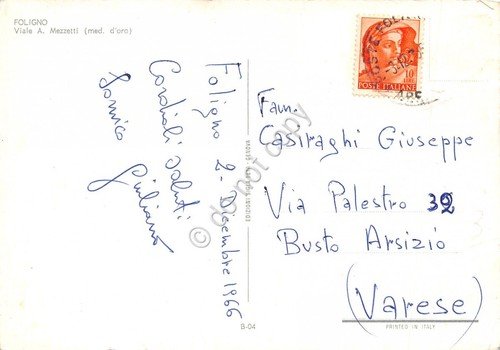 FOLIGNO
Viale A. Mezzetti (med. d'oro)
Foligno 2-Dicembre 1966
Cordiali saluti
Giuliano
POSTE ITALIANE
10
Fam.
Casiraghi Giuseppe
Via Palestro 32
Busto Arsizio
(Varese)
B-04
PRINTED IN ITALY
© depot copy